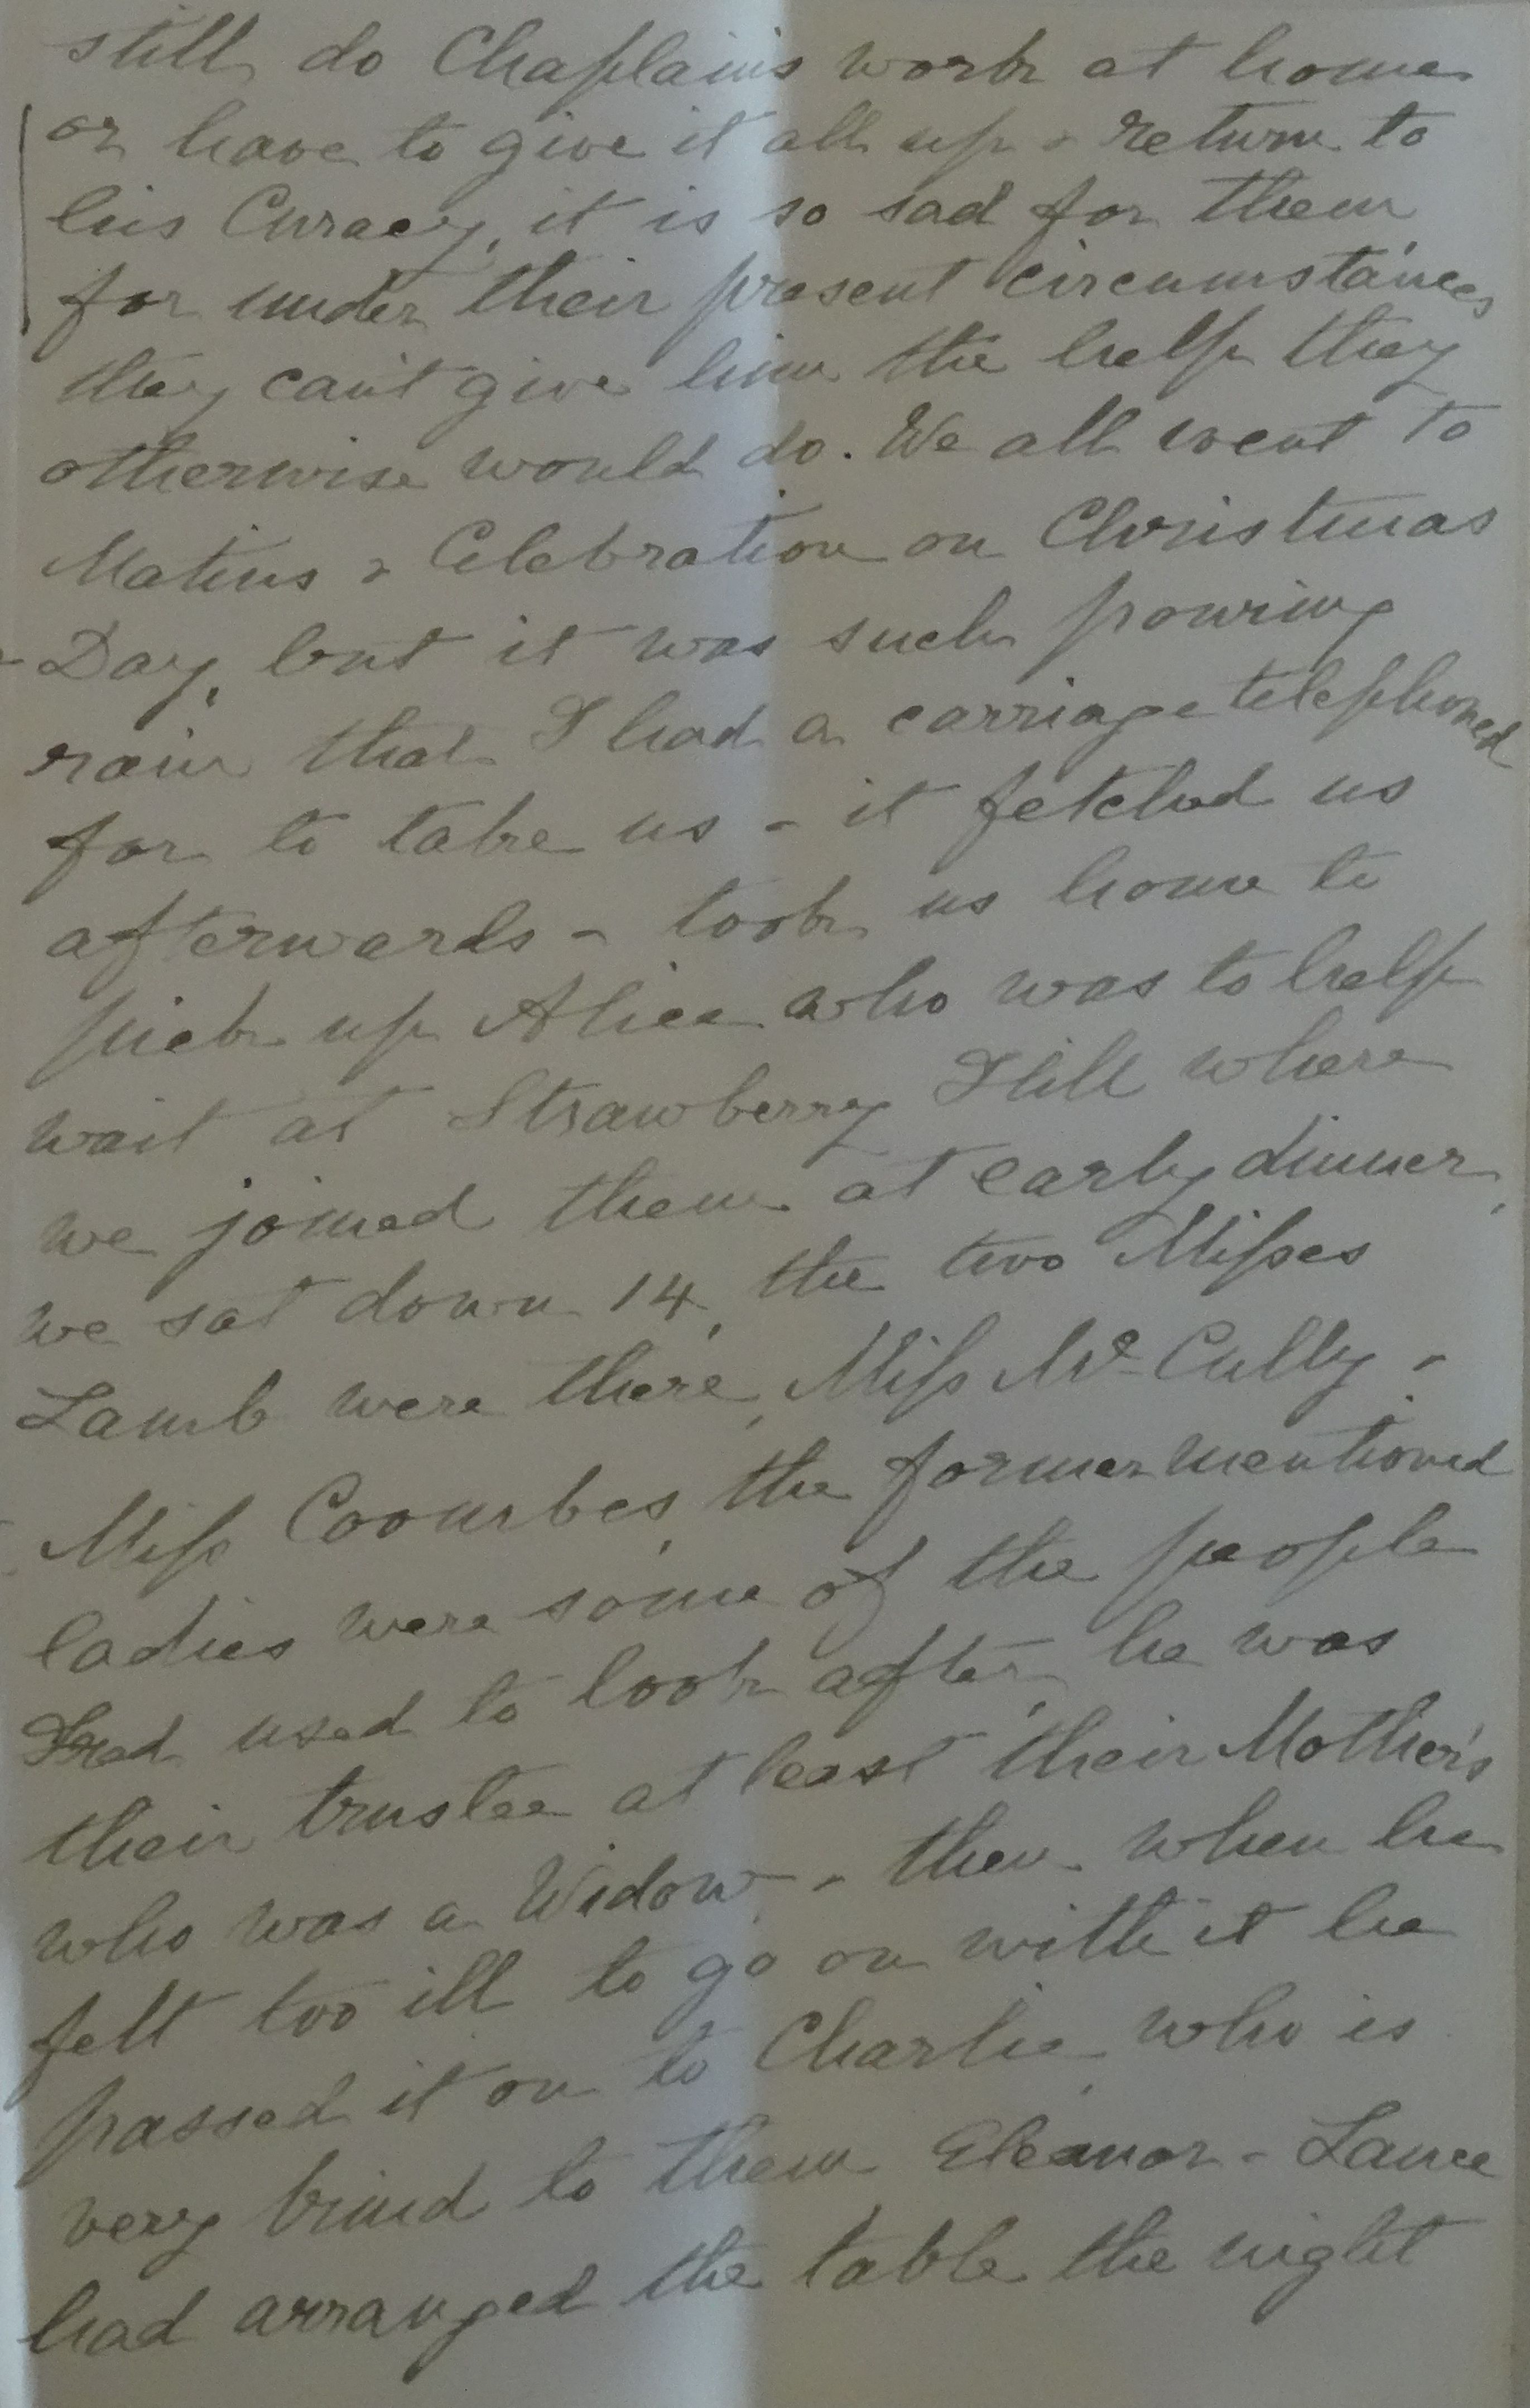 still do Chaplain's work at home
or have to give it all up & return to
his Curacy, it is so sad for them
for under their present circumstances
they can't give him the help they
otherwise would do. We all went to
Matins & Celebration on Christmas
Day, but it was such pouring
rain that I had a carriage telephoned
for to take us - it fetched us
afterwards - took us home to
pick up Alice who was to help
wait at Strawberry Hill where
we joined them at early dinner,
we sat down 14, the two Misses
Lamb were there, Miss Mc Cully -
Miss Coombes, the former mentioned
ladies were some of the people
Fred used to look after, he was
their trustee at least their Mother's
who was a Widow - then when he
felt too ill to go on with it he
passed it on to Charlie, who is
very kind to them Eleanor - Lance
had arranged the table the night